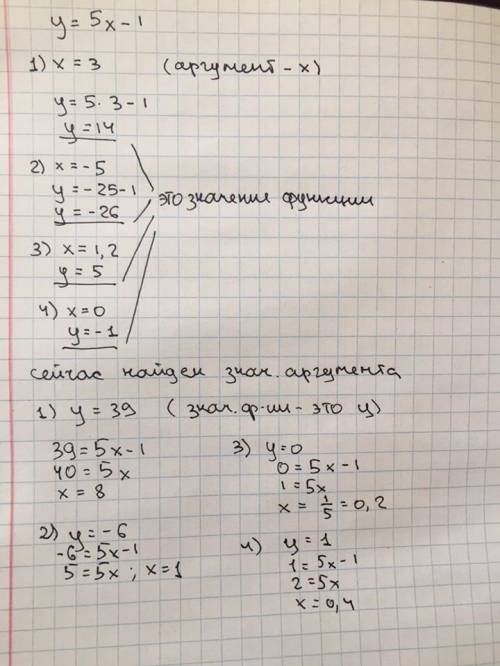 y = 5x - 1
1) x = 3 (аргумент - x)
y = 5 · 3 - 1
y = 14
2) x = - 5
y = - 25 - 1
y = - 26
это значения функции
3) x = 1,2
y = 5
4) x = 0
y = - 1
сейчас найдем знач. аргумента
1) y = 39 (знач. ф-ии - это y)
39 = 5x - 1
40 = 5x
x = 8
2) y = - 6
-6 = 5x - 1
5 = 5x ; x = 1
3) y = 0
0 = 5x - 1
1 = 5x
x = 1/5 = 0,2
4) y = 1
1 = 5x - 1
2 = 5x
x = 0,4